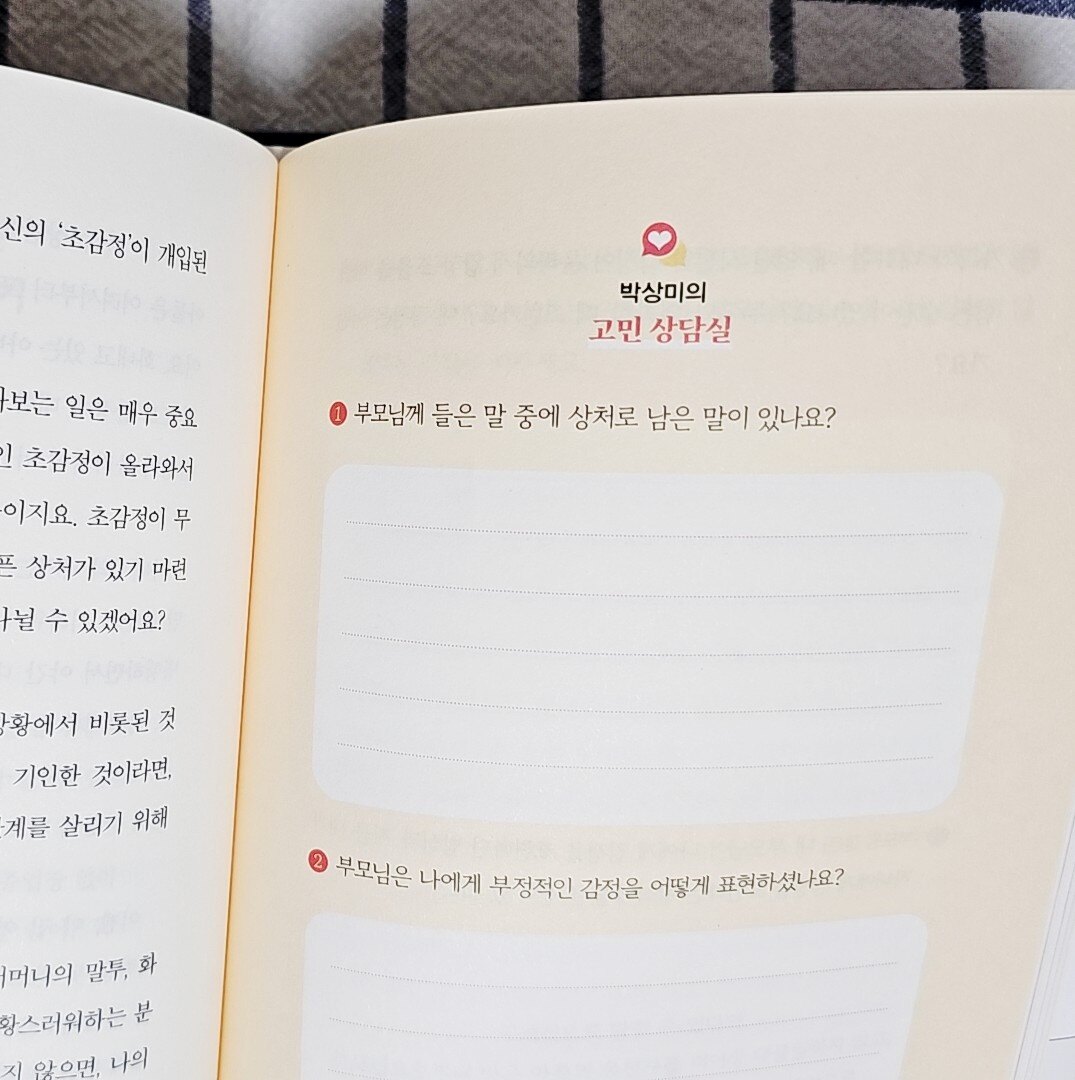 신의 '초감정'이 개입된
보는 일은 매우 중요
인 초감정이 올라와서
이지요. 초감정이 무
픈 상처가 있기 마련
나뉠 수 있겠어요?
상황에서 비롯된 것
기인한 것이라면,
관계를 살리기 위해
어머니의 말투, 화
황스러워하는 분
지 않으면, 나의
박상미의
고민 상담실
1 부모님께 들은 말 중에 상처로 남은 말이 있나요?
2 부모님은 나에게 부정적인 감정을 어떻게 표현하셨나요?